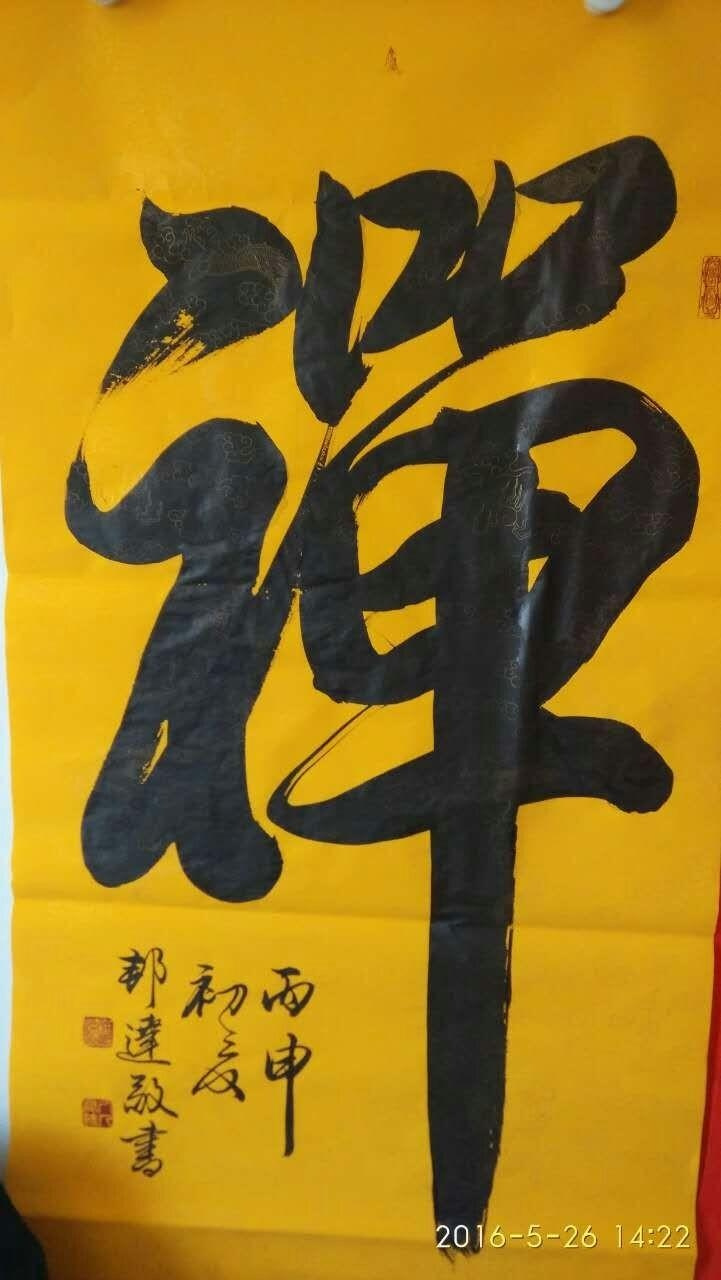 禪
丙申
初夏
邦達敬書
2016-5-26 14:22